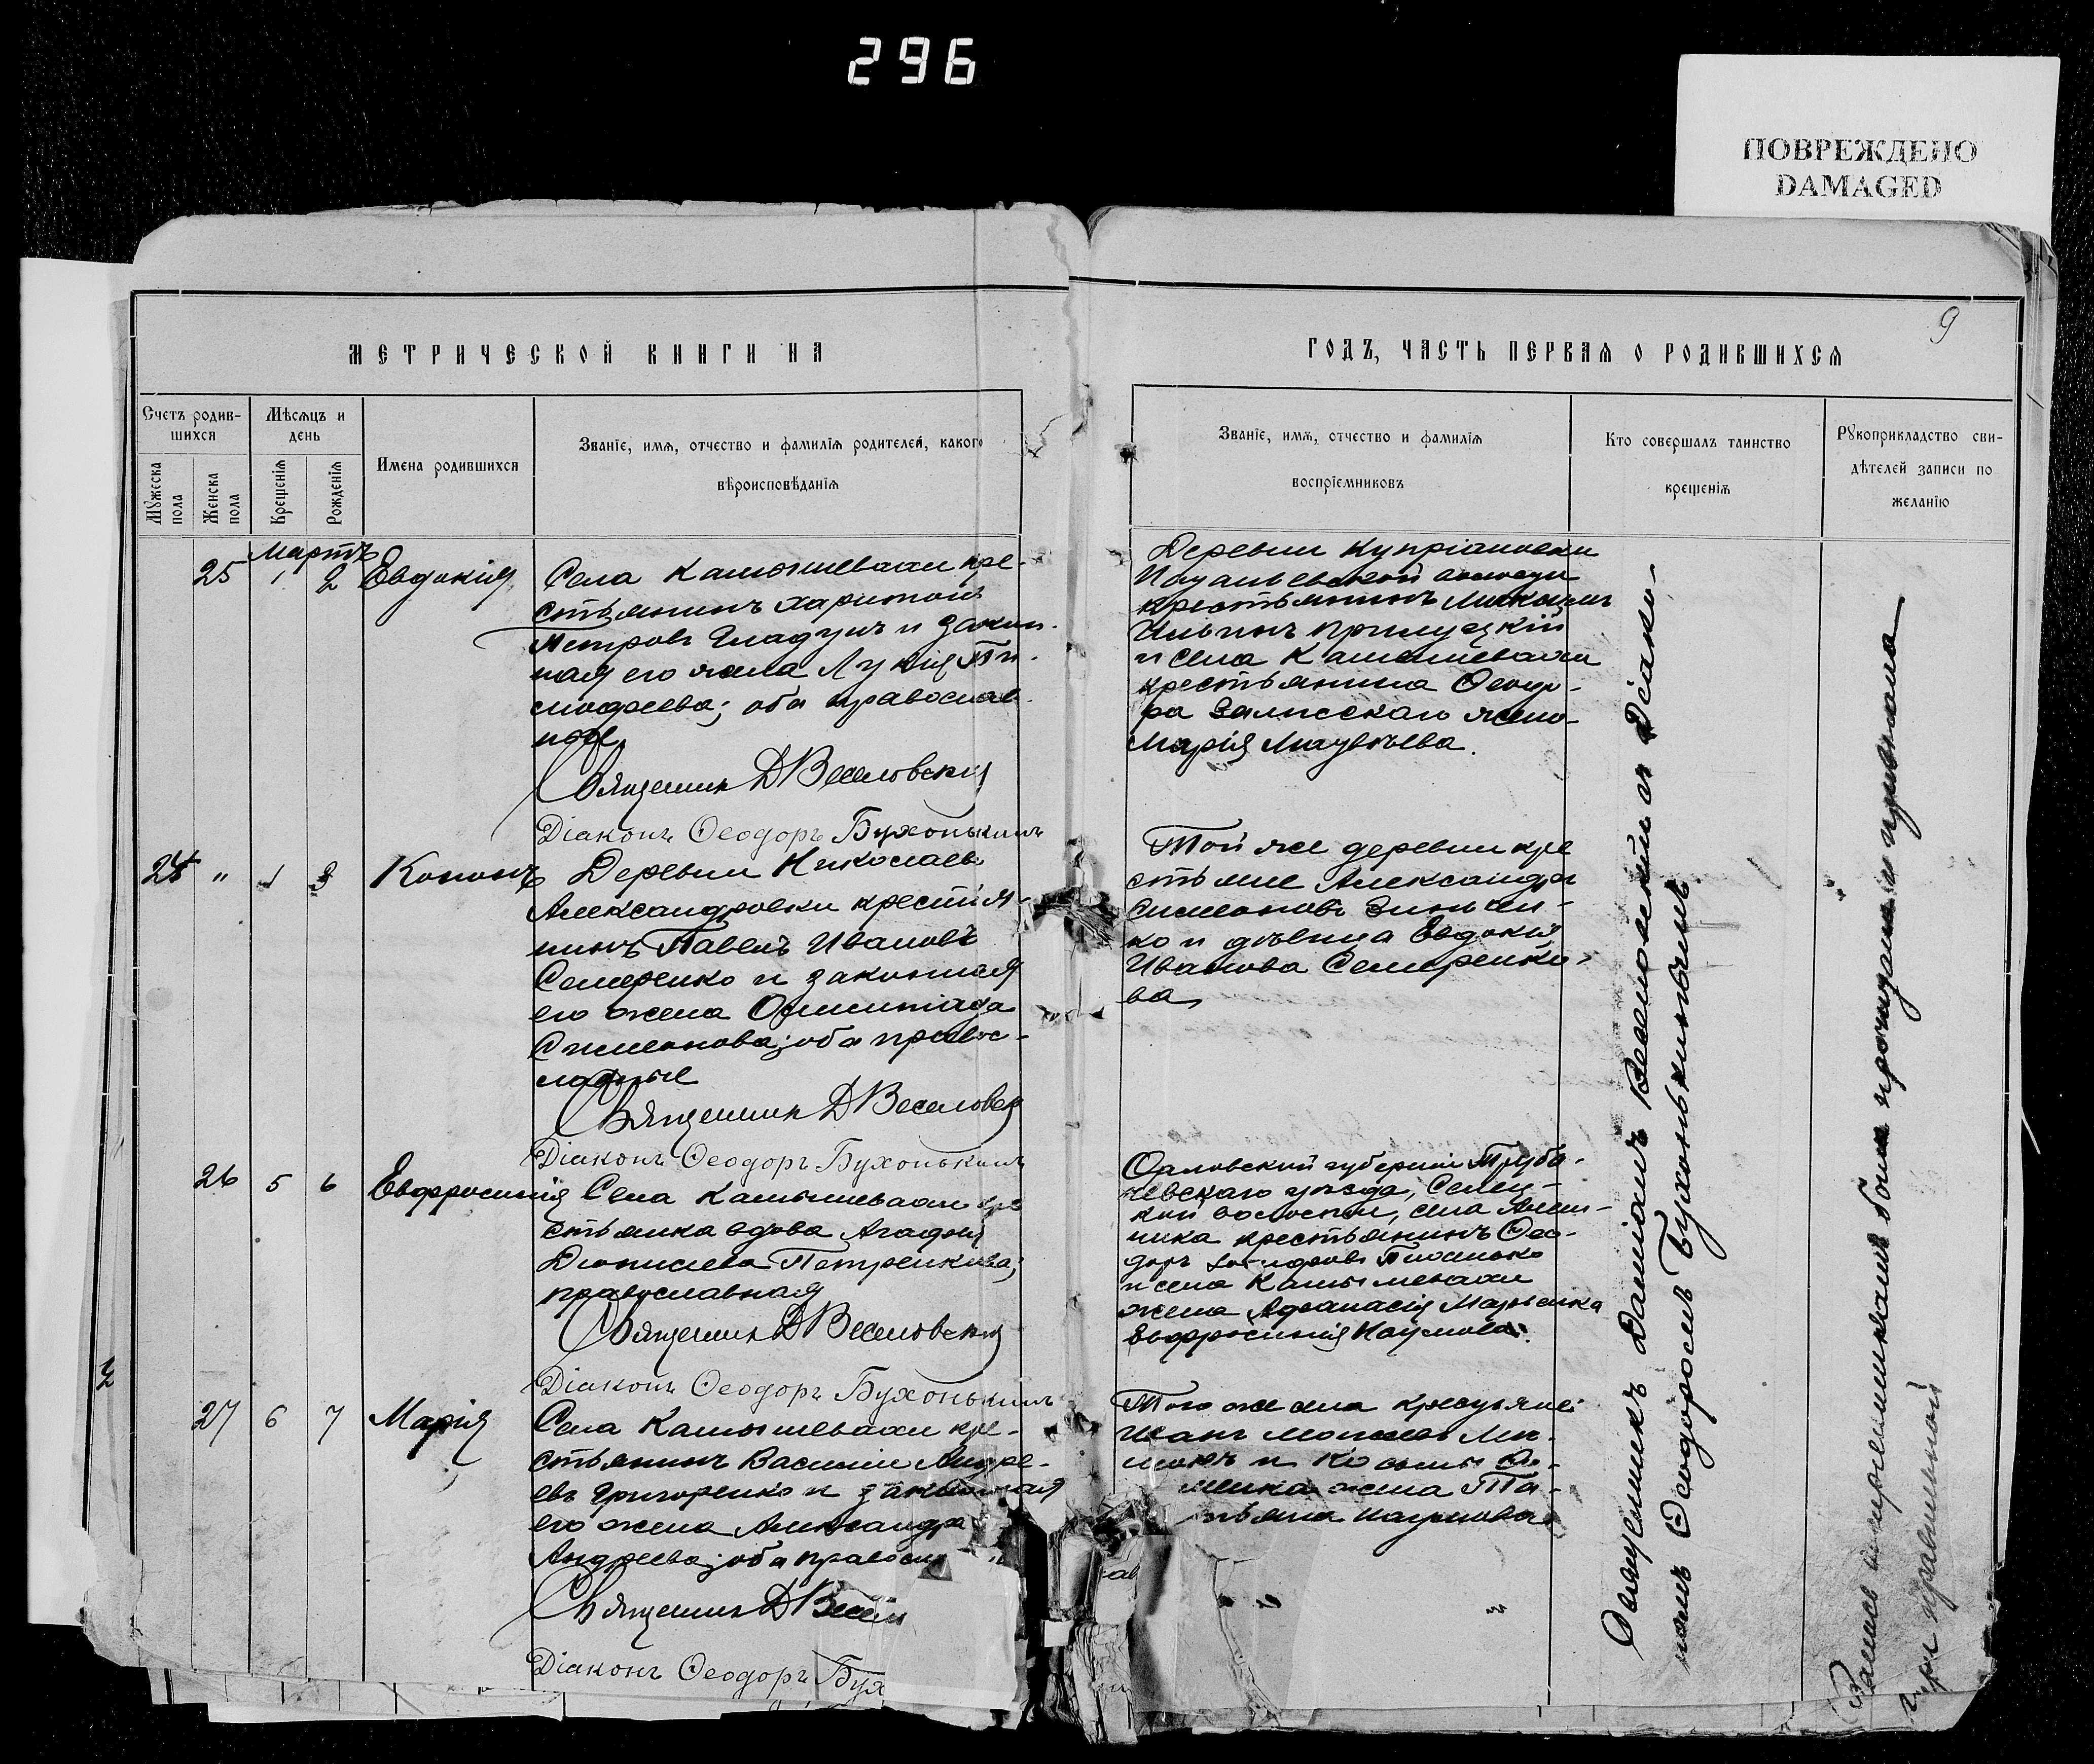 296
ПОВРЕЖДЕНО
DAMAGED
9
МЕТРИЧЕСКОЙ КНИГИ НА
ГОДЪ, ЧАСТЬ ПЕРВАЯ О РОДИВШИХСЯ
Счетъ родив-
шихся
Мужеска
пола
Женска
пола
Мѣсяцъ и
день
Крещенія
Рожденія
Имена родившихся
Званіе, имя, отчество и фамилія родителей, какого
вѣроисповѣданія
Званіе, имя, отчество и фамилія
воспріемниковъ
Кто совершалъ таинство
крещенія
Рукоприкладство сви-
дѣтелей записи по
желанію
Мартъ
25 1 2 Евдокія
Села Камышевахи кре-
стьянинъ Харитонъ
Петровъ Гладунъ и закон-
ная его жена Лукія Ти-
моѳеева; оба православ-
ные
Священник Д Веселовскій
Діаконъ Ѳеодоръ Бухонькинъ
Деревни Купріановки
волости
крестьянинъ Михаилъ
Ильинъ Прилуцкій
и села Камышевахи
крестьянина Ѳеодо-
ра Залисскаго жена
Марія Матвѣева.
24 " 1 3 Кононъ
Деревни Николаев
Александровки крестья-
нинъ Павелъ Ивановъ
Семеренко и законная
его жена Олимпіада
Симеонова; оба правос-
лавные
Священник Д Веселовск
Діаконъ Ѳеодоръ Бухонькинъ
Той же деревни кре
стьяне Александръ
Симеоновъ Зинчен-
ко и дѣвица Евдокія
Иванова Семеренко-
ва
26 5 6 Евфросинія
Села Камышевахи кре
стьянка вдова Агафія
Діонисіева Петренкова;
православная
Священник Д Веселовскій
Діаконъ Ѳеодоръ Бухонькинъ
Орловской губерніи Трубч-
евскаго уѣзда, Селец-
кой волости, села
крестьянинъ Ѳео-
доръ
и села Камышевахи
жена Афанасія
Евфросинія Наумова.
27 6 7 Марія
Села Камышевахи кре-
стьянинъ Василій Андре-
евъ Григоренко и законная
его жена Александра
Андреева; оба правосл
Священник Д Весел
Діаконъ Ѳеодоръ Бух
Того же села крестьяне
Иванъ
и
жена Та-
тьяна Наумова
Священникъ Даміанъ Веселовскій съ Діако-
номъ Ѳеодоромъ Бухонькинымъ
Запись воспріемникамъ была прочитана и признана
ими правильной